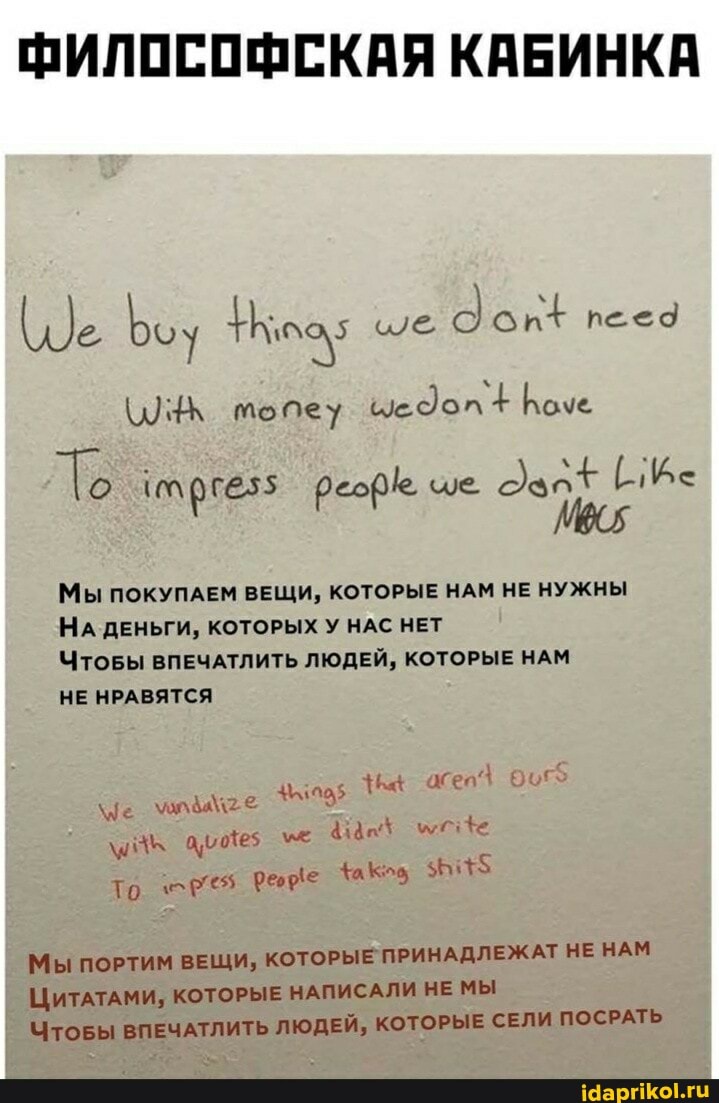 ФИЛОСОФСКАЯ КАБИНКА
We buy things we don't need
With money we don't have
To impress people we don't Like
Мы покупаем вещи, которые нам не нужны
На деньги, которых у нас нет
Чтобы впечатлить людей, которые нам
не нравятся
We vandalize things that aren't ours
With quotes we didn't write
To impress people taking shits
Мы портим вещи, которые принадлежат не нам
Цитатами, которые написали не мы
Чтобы впечатлить людей, которые сели посрать
idaprikol.ru